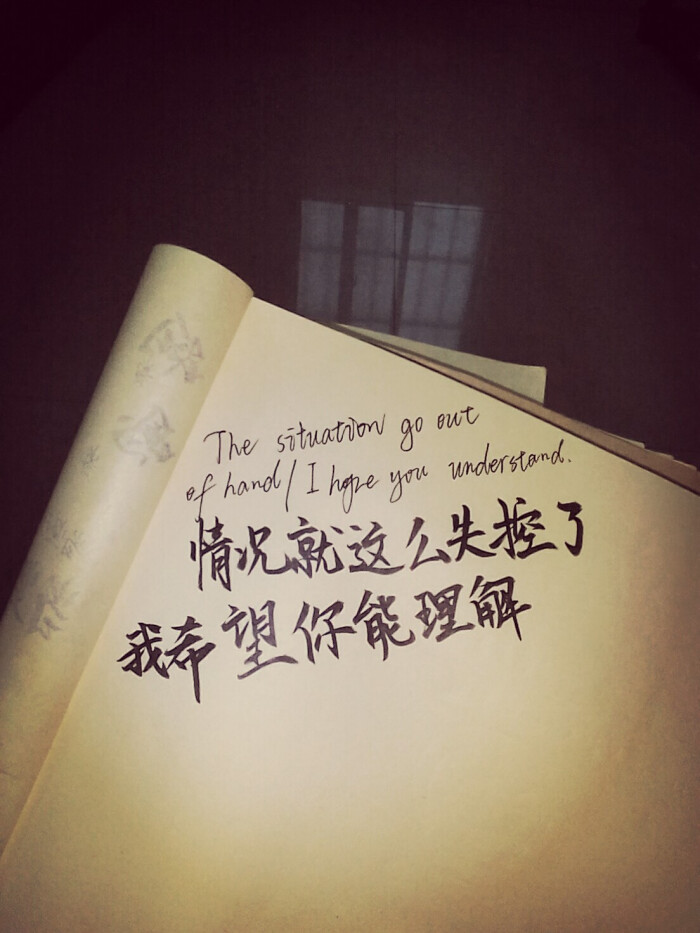 The situation go out
of hand / I hope you understand.
情况就这么失控了
我希望你能理解